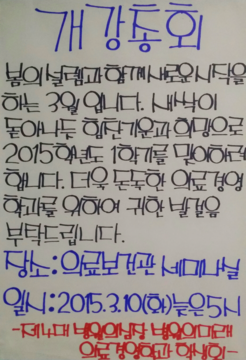 개강총회
봄의 설렘과 함께 새로운 시작을
하는 3월 입니다. 새싹이
돋아나듯 힘찬기운과 희망으로
2015학년도 1학기를 맞이하려
합니다. 더욱 돈독한 의료경영
학과를 위하여 귀한 발걸음
부탁드립니다.
장소:의료보건관 세미나실
일시:2015.3.10(화)늦은5시
-제4대 병원의심장 병원의미래
의료경영학과 학생회-